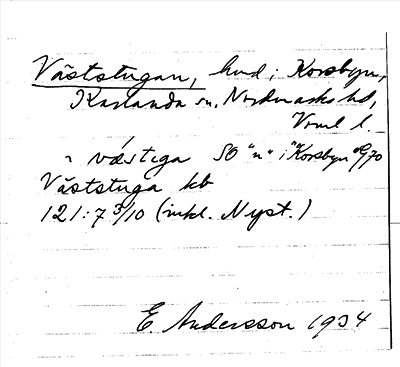 Väststugan, hmd i Korsbyn,
Karlanda sn, Nordmarks hd,
Vrml l.
~ vǽstiga SO "n" i "Korsbyn
Väststuga kb
121:7 3/10 (inkl. Nyst.)
E. Andersson 1934